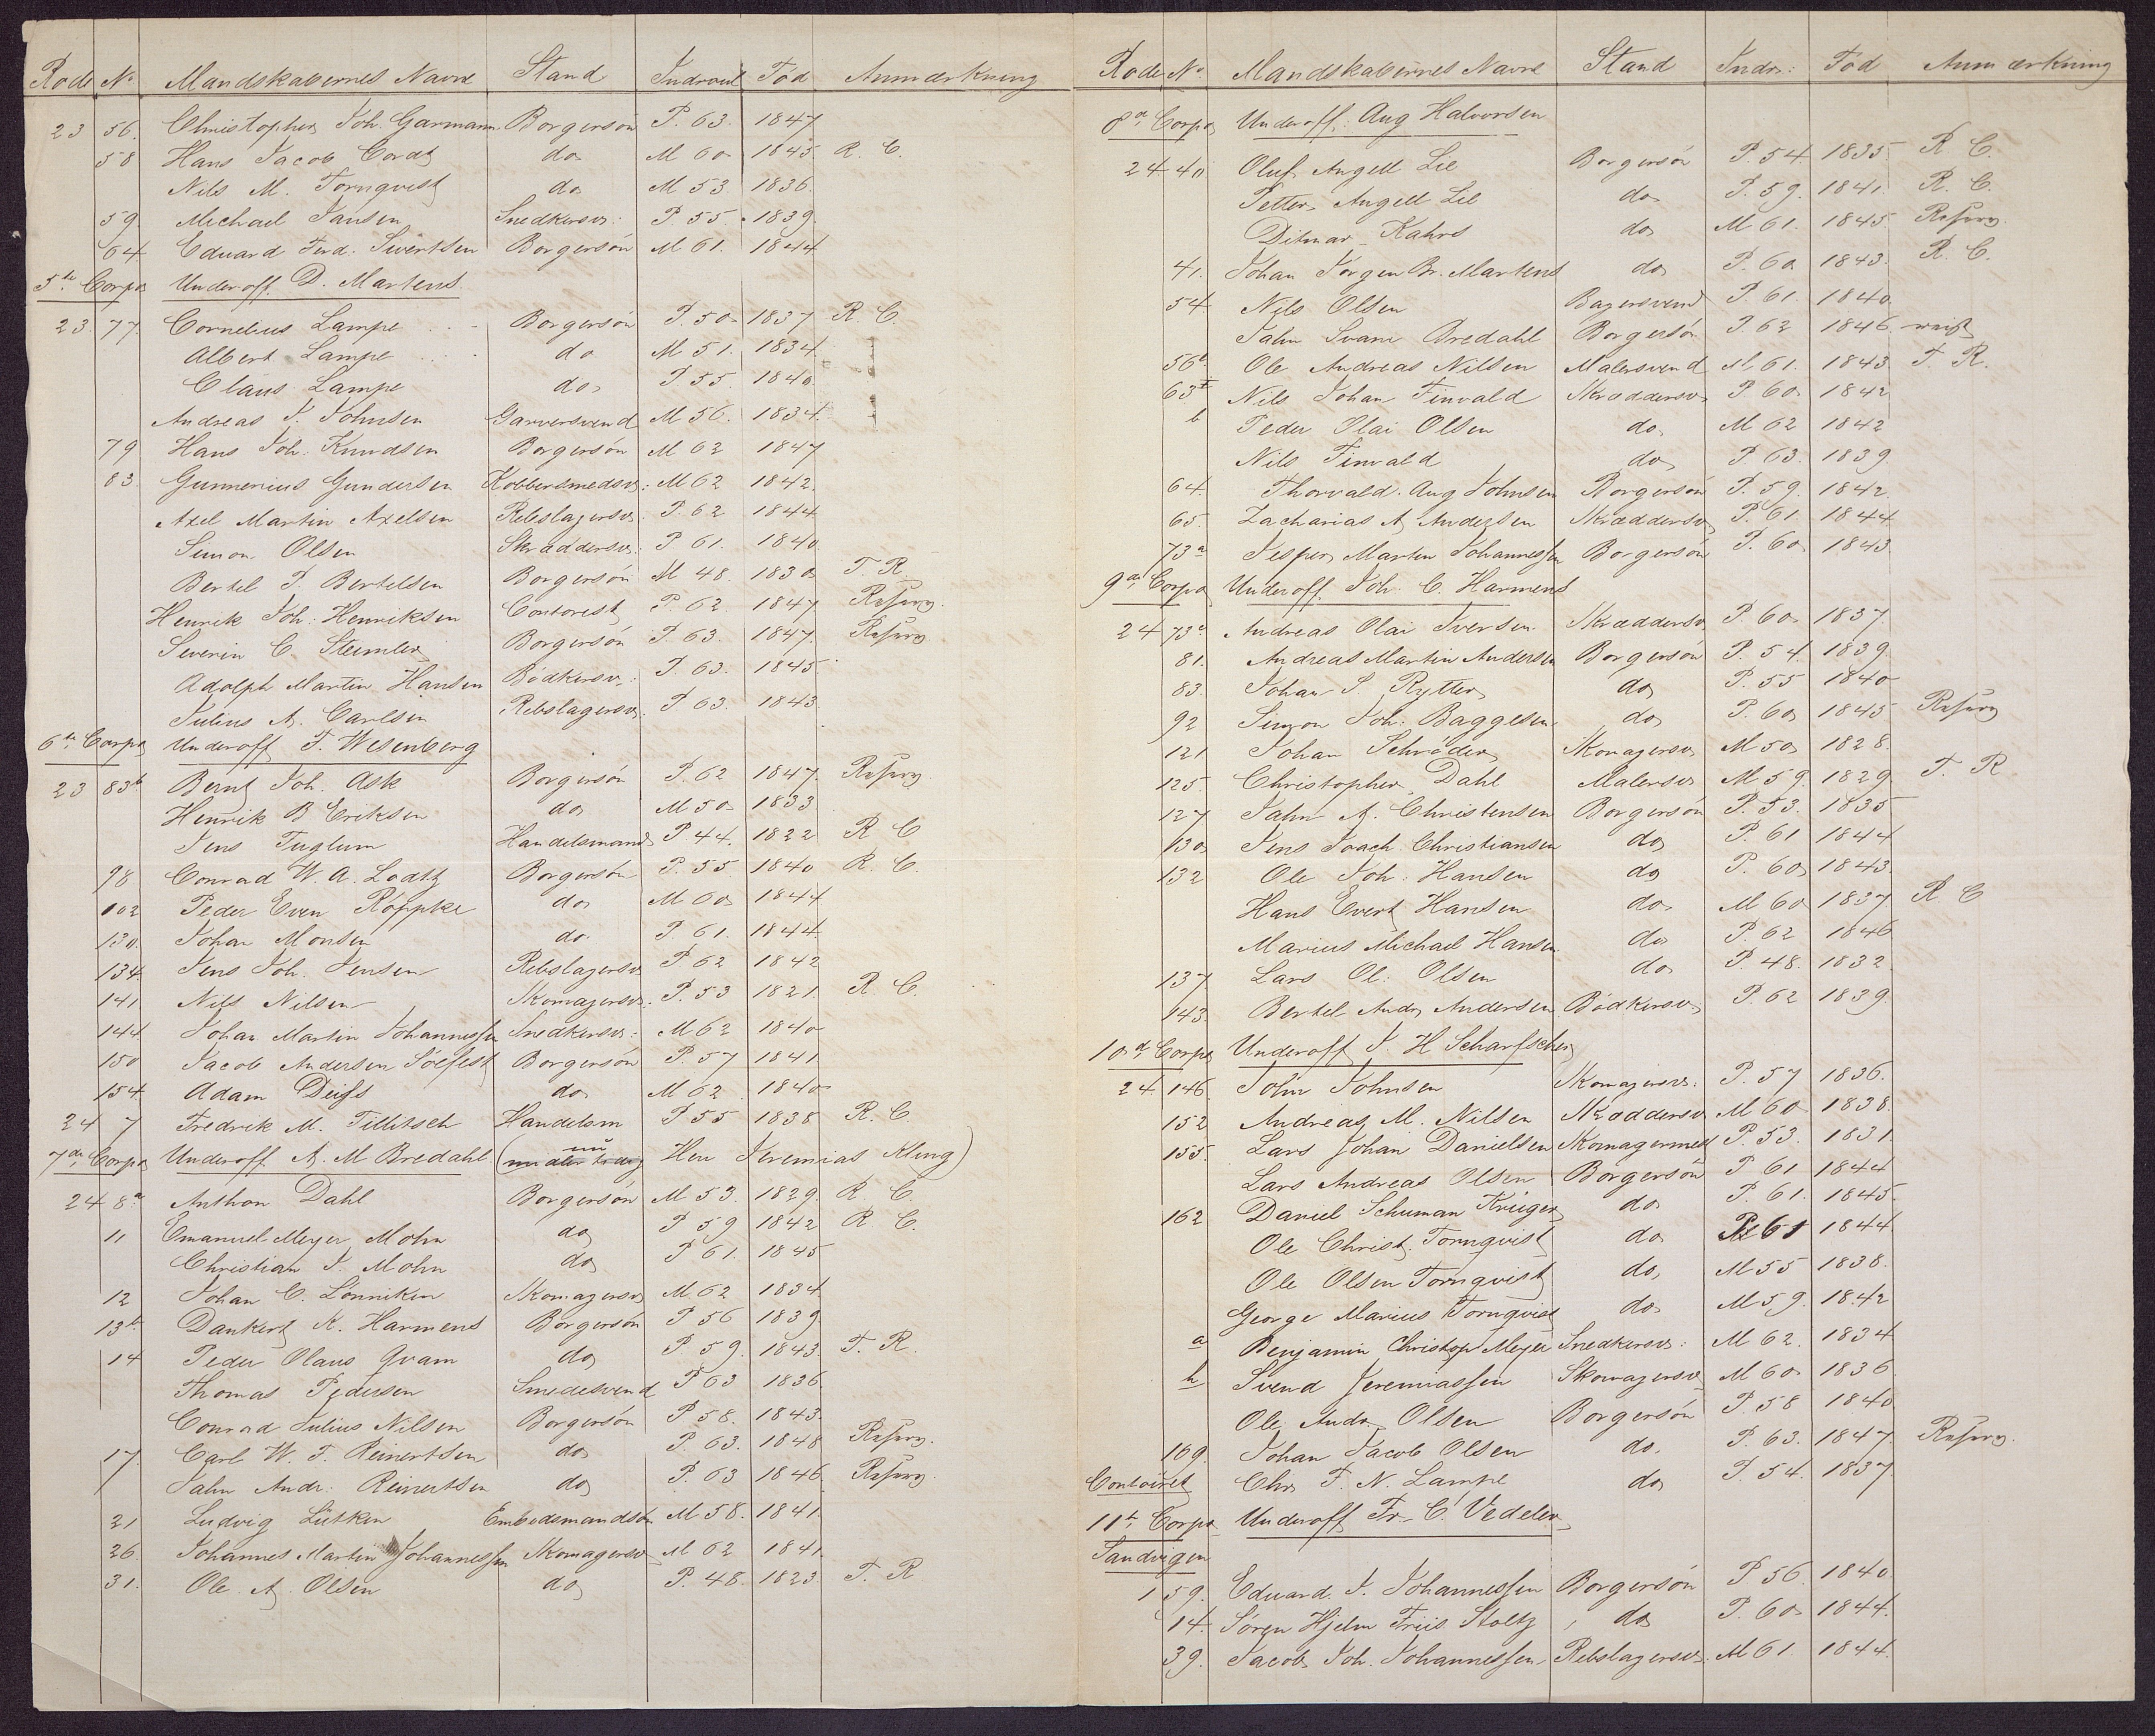 Rode No Mandskabernes Navne Stand Indroul Fød Anmærkning
23 56. Christopher Joh. Garmann Borgersön P. 63. 1847
58 Hans Jacob Cordtz do M 60 1845 R. C.
Nils M. Tornqvist do M 53 1836.
59 Michael Jansen Snedkersv: P. 55 1839.
64 Eduard Ferd. Sivertsen Borgersön M 61. 1844
5te Corps Underoff. D. Martens.
23. 77. Cornelius Lampe Borgersön P. 50 1837 R. C.
Albert Lampe do M 51. 1834.
Claus Lampe do P 55. 1840.
Andreas J. Johnsen Garversvend M 56. 1834.
79 Hans Joh. Knudsen Borgersön M 62 1847
83. Gunnerius Gundersen Kobbersmedsv: M 62 1842.
Axel Martin Axelsen Rebslagersv. P. 62 1844
Simon Olsen Skraddersv: P 61. 1840.
Bertel P. Bertelsen Borgersön M 48. 1830 T. R.
Henrik Joh. Henriksen Contorist P. 62 1847 Reserv.
Severin C. Steimler Borgersön P. 63. 1847. Reserv
Adolph Martin Hansen Bödkersv: P. 63. 1845.
Julius A. Carlsen Rebslagersv. P 63. 1843
6te Corps Underoff F. Wesenberg
23 83b Bernt Joh. Ask Borgersön P. 62 1847. Reserv.
Henrik B Eriksen do M 50 1833
Jens Fuglum Handelsmand P. 44. 1822 R C
98 Conrad W. A. Lodtz Borgersön P. 55 1840 R. C.
102 Peder Even Röppke do M 60 1844
130. Johan Monsen do P 61. 1844.
134. Jens Joh. Jensen Rebslagersv P 62 1842
141 Nils Nilsen Skomagersv. P. 53 1821. R. C.
144 Johan Martin Johannessen Snedkersv: M 62 1840
150 Jacob Andersen Söefest Borgersön P. 57 1841
154. Adam Deiss do M 62 1840
24 7 Fredrik M. Tillitsch Handelsm P 55 1838 R. C.
7de Corps Underoff A. M Bredahl ( nu Herr Jeremias Kling)
24 8a Anthon Dahl Borgersön M 53. 1829. R. C.
11 Emanuel Meyer Mohn do P 59 1842 R. C.
Christian J. Mohn do P 61. 1845
12 Johan C. Lönniken Skomagersv M 62 1834
13b Dankert K. Harmens Borgersön P 56 1839
14 Peder Olaus Qvam do P 59. 1843. T. R.
Thomas Pedersen Smedesvend P 63 1836.
Conrad Julius Nilsen Borgersön P 58. 1843.
17. Carl W. F. Reinertsen do P. 63. 1848 Reserv.
Jahn Andr: Reinertsen do P. 63 1846. Reserv.
21 Ludvig Lütken Embedsmandsön M 58. 1841.
26. Johannes Martin Johannessen Skomagersv M 62 1841.
31. Ole A. Olsen do P. 48. 1823 T. R
Rode No Mandskabernes Navne Stand Indr: Fød Anmærkning
8de Corps Underoff: Aug Halvorsen
24 40 Oluf Angell Lie Borgersön P. 54 1835 R C.
Petter Angell Lie do P. 59. 1841. R. C.
Ditmar Kahrs do M 61. 1845 Reserv.
41. Johan Jörgen Br. Martens do P. 60 1843. R. C.
54 Nils Olsen Bagersvend P. 61. 1840
Jahn Svane Bredahl Borgersön P. 62 1846.
56b Ole Andreas Nilsen Malersvend M 61. 1843 T. R.
63a Nils Johan Finvald Skraddersv P 60 1842
b Peder Olai Olsen do M 62 1842
Nils Finvald do P 63. 1839
64. Thorvald Aug Johnsen Borgersön P. 59. 1842
65. Zacharias A Andersen Skraddersv P. 61. 1844
73a Jesper Martin Johannessen Borgersön P. 60 1843
9de Corps Underoff Joh. C. Harmens
24 73c Andreas Olai Iversen Skraddersv P. 60 1837.
81. Andreas Martin Andersen Borgersön P. 54 1839
83. Johan S. Rytter do P. 55 1840
92 Simon Joh. Baggesen do P. 60 1845 Reserv
121 Johan Schröder Skomagersv M 50 1828.
125. Christopher Dahl Malersv M 59. 1829. T. R
127 Jahn A. Christensen Borgersön P. 53. 1835
130 Jens Joach. Christiansen do P. 61 1844
132 Ole Joh. Hansen do P. 60 1843.
Hans Evert Hansen do M 60 1837. R C
Marius Michael Hansen do P. 62 1846
137 Lars Ol. Olsen do P. 48. 1832
143. Bertel Andr Andersen Bödkersv. P. 62 1839
10de Corps Underoff J. H Scharfscher
24. 146. John Johnsen Skomagersv: P. 57 1836.
152 Andreas M. Nilsen Skraddersv M 60 1838.
155. Lars Johan Danielsen Skomagermest P. 53. 1831
Lars Andreas Olsen Borgersön P 61 1844
162 Daniel Schuman Krüger do P. 61. 1845.
Ole Christ. Tornqvist do P 61 1844
Ole Olsen Tornqvist do M 55 1838.
George Marius Tornqvist do M 59. 1842
a Benjamin Christop Meyer Snedkersv: M 62. 1834
h Svend Jeremiassen Skomagersv M 60 1836
Ole Andr. Olsen Borgersön P. 58 1840
169. Johan Jacob Olsen do P. 63. 1847. Reserv.
Contoiret Chr F. N. Lampe do P. 54. 1837.
11te Corps Underoff Fr. C. Vedeler
Sandvigen
1 59. Eduard J. Johannessen Borgersön P 56. 1840
14. Sören Hjelm Friis Stoltz do P. 60 1844.
39. Jacob Joh. Johannessen Rebslagersv. M 61 1844.